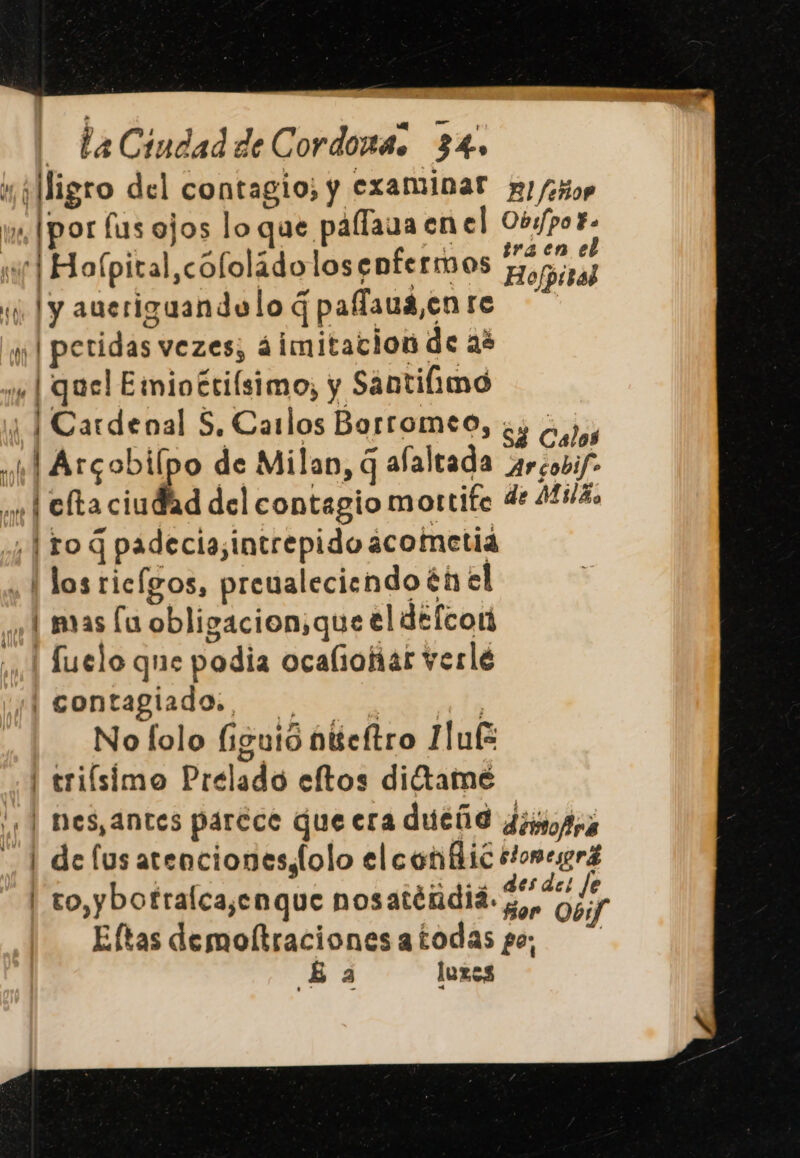 la Ciudad de Cordoua. 34.
ligro del contagio; y examinar
por ſus ojos lo que paſſaua en el
Hoſpital, cõſolãdo los enfermos
y aueriguando lo q̃ paſſauã, en re
petidas vezes; à imitacion de aq̃
quel Eminẽtiſsimo, y Sãntiſimo
Cardenal S. Carlos Borromeo,
Arçobiſpo de Milan, q̃ aſaltada
eſta ciudad del contagio mortife
ro q̃ padecia, intrepido acometiá
los rieſgos, preualeciendo en el
mas ſu obligacion, que el deſcon
ſuelo que podia ocaſionar verle
contagiado.
No ſolo ſiguió nueſtro Iluſ
triſsimo Prelado eſtos dictamẽ
nes, antes parece que era dueño
de ſus atenciones, ſolo el conflic
to, y borraſca, en que nos atẽdiã.
Eſtas demoſtraciones a todas
E 2 luzes
El ſeñor
Obiſpo ẽ.
trá en el
Hoſpital
Sã Calos
Arçobiſ-
de Milã.
demoſtra
ciones grã
des del ſe
ñor Obiſ
po;